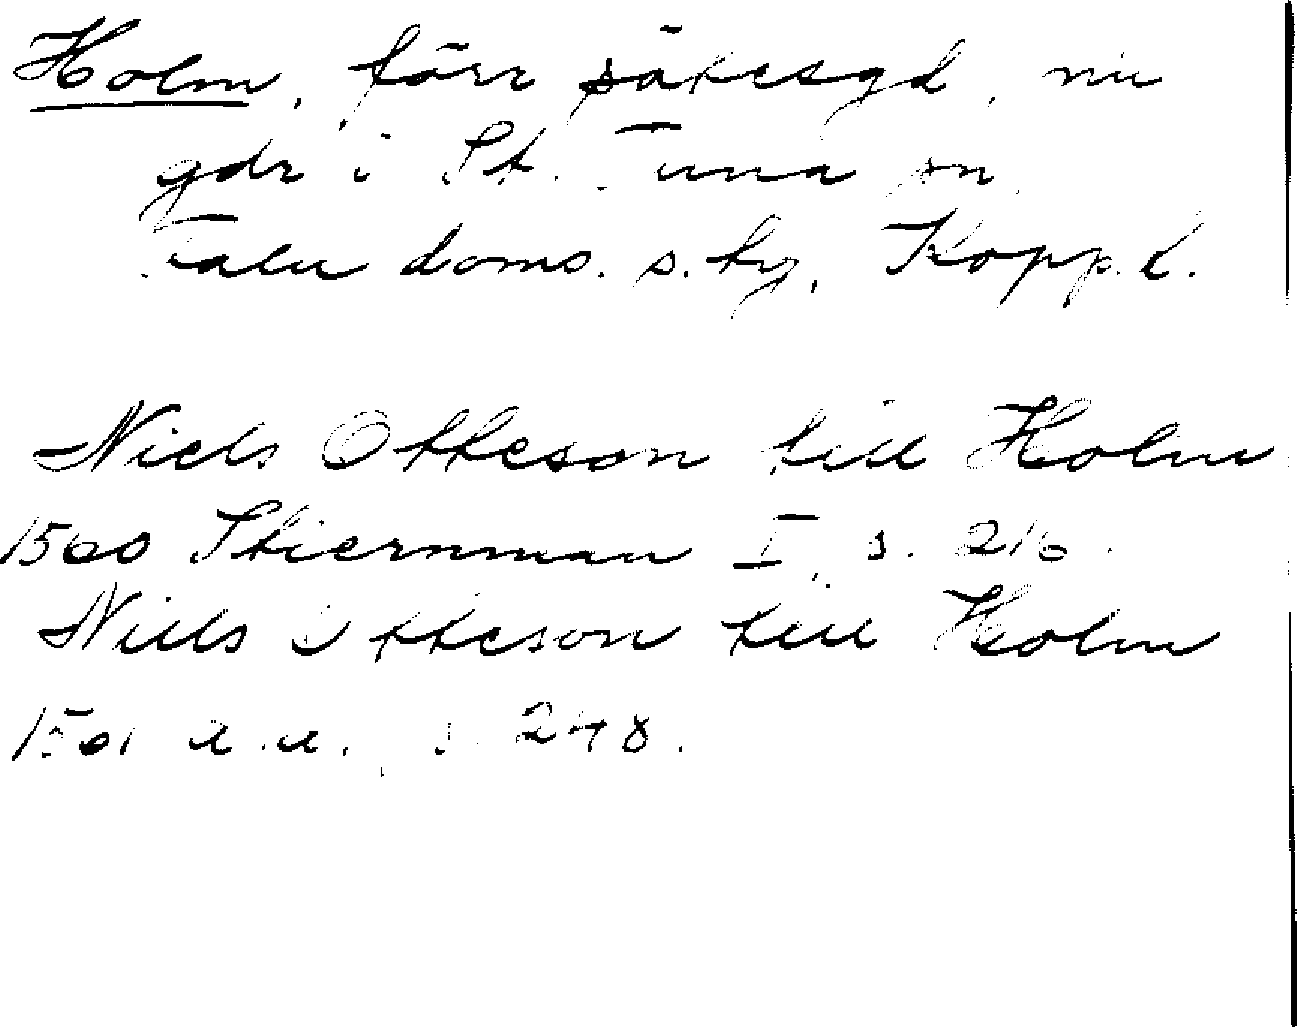 Holm, förr sätesgd, nu
gdr i St. Tuna sn,
Falu doms. s. hg, Kopp. l.
Niels Otteson till Holm
1560 Stiernman I, s. 216.
Niels Otteson till Holm
1561 a.a., s. 248.